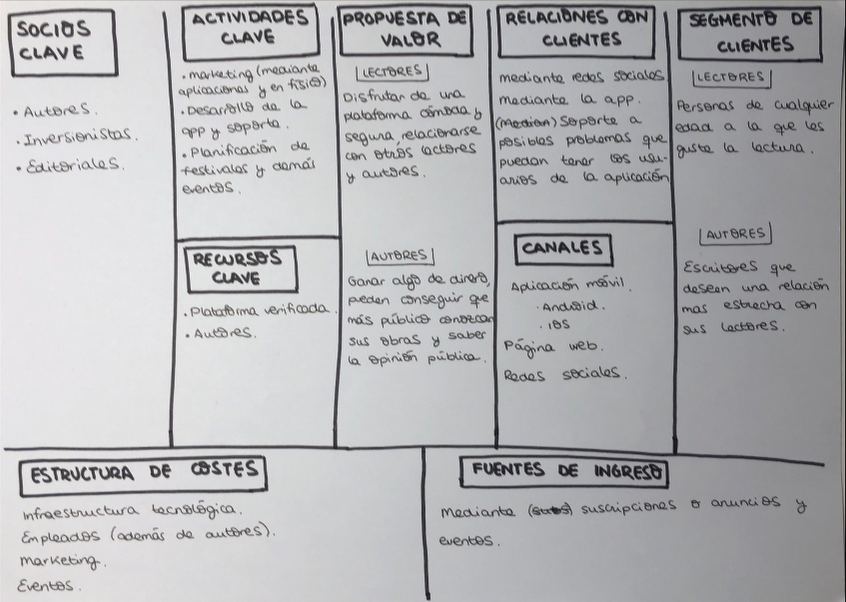 SOCIOS
CLAVE
• Autores.
• Inversionistas.
• Editoriales.
ACTIVIDADES
CLAVE
• marketing (mediante
aplicaciones y en físico)
• Desarrollo de la
app y soporte.
• Planificación de
festivales y demás
eventos.
RECURSOS
CLAVE
• Plataforma verificada.
• Autores.
PROPUESTA DE
VALOR
LECTORES
Disfrutar de una
plataforma cómoda y
segura, relacionarse
con otros lectores
y autores.
AUTORES
Ganar algo de dinero,
pueden conseguir que
más público conozcan
sus obras y saber
la opinión pública.
RELACIONES CON
CLIENTES
mediante redes sociales
mediante la app.
(Median) Soporte a
posibles problemas que
puedan tener los usu-
arios de la aplicación
CANALES
Aplicación móvil.
• Android.
• iOS
Página web.
Redes sociales.
SEGMENTO DE
CLIENTES
LECTORES
Personas de cualquier
edad a la que les
guste la lectura.
AUTORES
Escritores que
desean una relación
mas estrecha con
sus lectores.
ESTRUCTURA DE COSTES
Infraestructura tecnológica.
Empleados (además de autores).
Marketing.
Eventos.
FUENTES DE INGRESO
Mediante suscripciones o anuncios y
eventos.